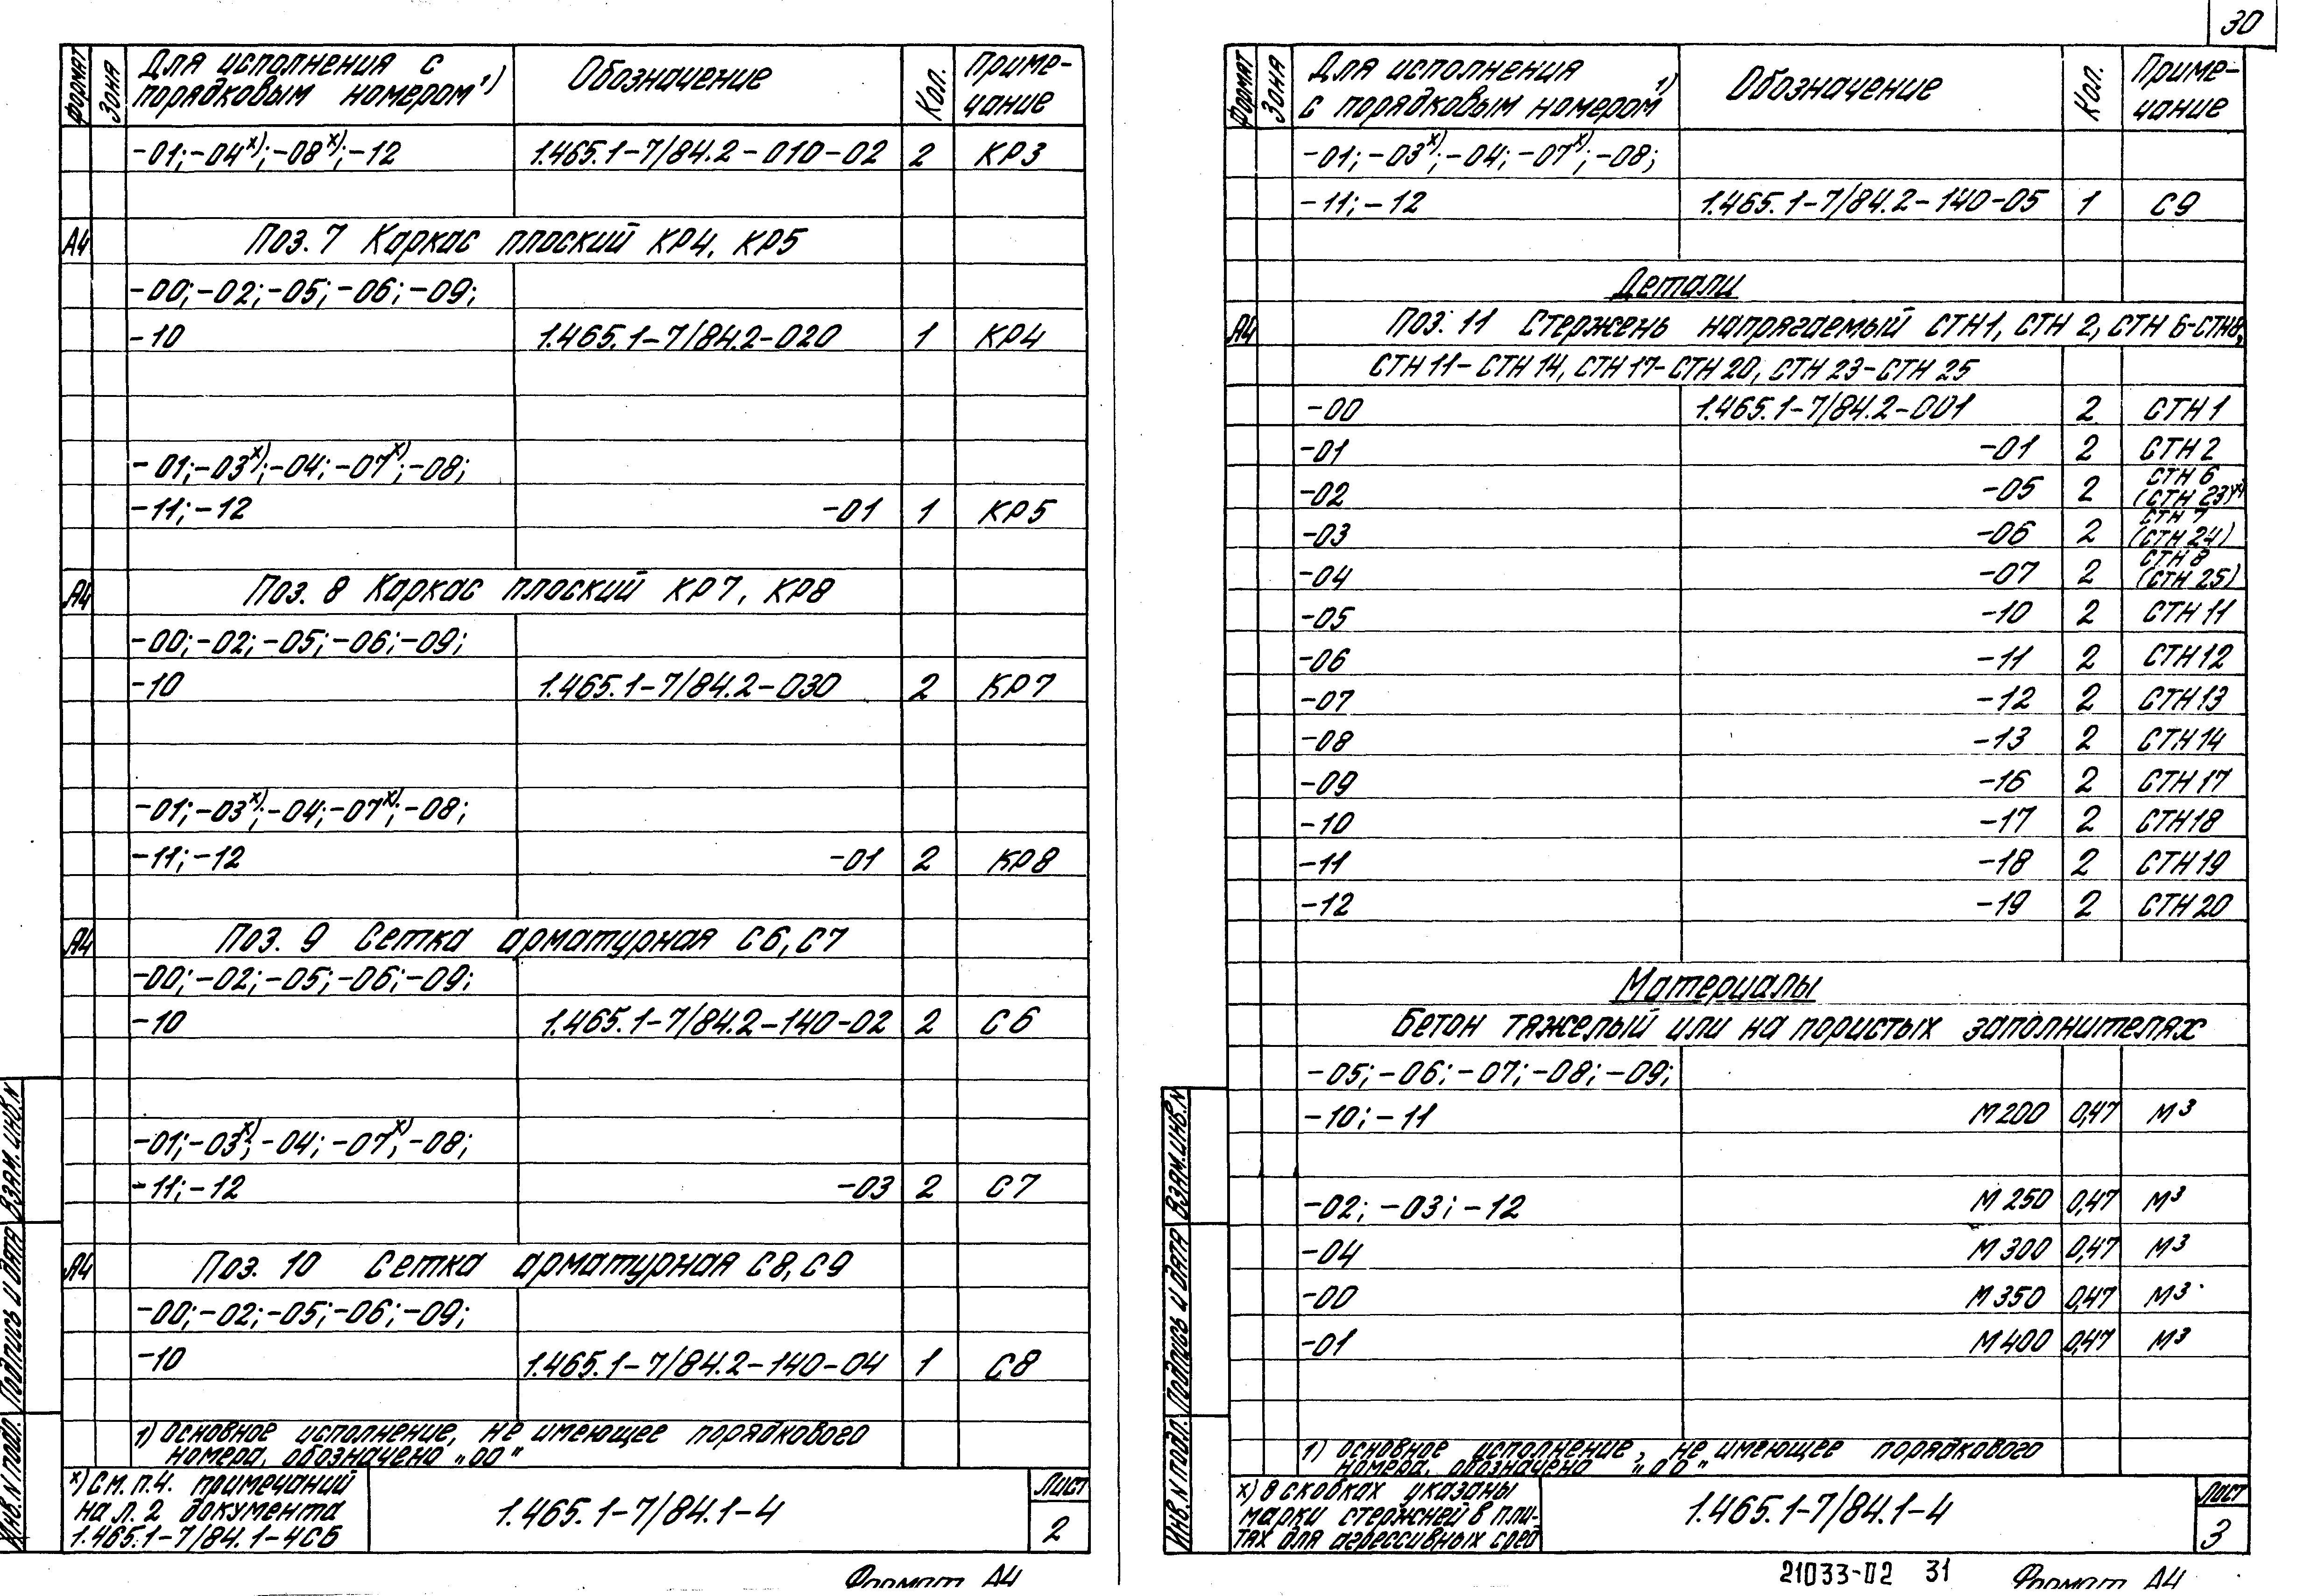 30
Формат
Зона
Для исполнения с
порядковым номером¹)
Обозначение
Кол.
Приме-
чание
-01; -04ˣ⁾; -08ˣ⁾; -12 1.465.1-7/84.2-010-02 2 КР3
А4 Поз. 7 Каркас плоский КР4, КР5
-00; -02; -05; -06; -09;
-10 1.465.1-7/84.2-020 1 КР4
-01; -03ˣ⁾; -04; -07ˣ⁾; -08;
-11; -12 -01 1 КР5
А4 Поз. 8 Каркас плоский КР7, КР8
-00; -02; -05; -06; -09;
-10 1.465.1-7/84.2-030 2 КР7
-01; -03ˣ⁾; -04; -07ˣ⁾; -08;
-11; -12 -01 2 КР8
А4 Поз. 9 Сетка арматурная С6, С7
-00; -02; -05; -06; -09;
-10 1.465.1-7/84.2-140-02 2 С6
-01; -03ˣ⁾; -04; -07ˣ⁾; -08;
-11; -12 -03 2 С7
А4 Поз. 10 Сетка арматурная С8, С9
-00; -02; -05; -06; -09;
-10 1.465.1-7/84.2-140-04 1 С8
1) Основное исполнение, не имеющее порядкового
номера, обозначено „00"
х) См. п.4. примечаний
на л. 2 документа
1.465.1-7/84.1-4СБ
1.465.1-7/84.1-4
Лист
2
Инв. N подл. Подпись и дата Взам. инв. N
Формат А4
Формат
Зона
Для исполнения
с порядковым номером¹)
Обозначение
Кол.
Приме-
чание
-01; -03ˣ⁾; -04; -07ˣ⁾; -08;
-11; -12 1.465.1-7/84.2-140-05 1 С9
Детали
А4 Поз. 11 Стержень напрягаемый СТН1, СТН 2, СТН 6-СТН8,
СТН 11- СТН 14, СТН 17- СТН 20, СТН 23-СТН 25
-00 1.465.1-7/84.2-001 2 СТН 1
-01 -01 2 СТН 2
-02 -05 2 СТН 6
(СТН 23)ˣ⁾
-03 -06 2 СТН 7
(СТН 24)
-04 -07 2 СТН 8
(СТН 25)
-05 -10 2 СТН 11
-06 -11 2 СТН 12
-07 -12 2 СТН 13
-08 -13 2 СТН 14
-09 -16 2 СТН 17
-10 -17 2 СТН 18
-11 -18 2 СТН 19
-12 -19 2 СТН 20
Материалы
Бетон тяжелый или на пористых заполнителях
-05; -06; -07; -08; -09;
-10; -11 М 200 0,47 м³
-02; -03; -12 М 250 0,47 м³
-04 М 300 0,47 м³
-00 М 350 0,47 м³
-01 М 400 0,47 м³
1) Основное исполнение, не имеющее порядкового
номера, обозначено „00"
х) В скобках указаны
марки стержней в пли-
тах для агрессивных сред
1.465.1-7/84.1-4
Лист
3
Инв. N подл. Подпись и дата Взам. инв. N
21033-02 31 Формат А4